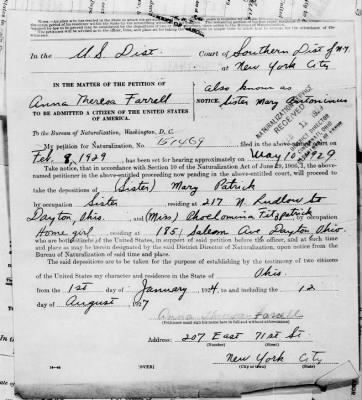 In the U.S. Dist. Court of Southern Dist of N.Y.
at New York City
IN THE MATTER OF THE PETITION OF
Anna Theresa Farrell
TO BE ADMITTED A CITIZEN OF THE UNITED STATES
OF AMERICA.
also known as
NOTICE. Sister Mary
To the Bureau of Naturalization, Washington, D. C.
My petition for naturalization, No. filed in the above-named court on
Feb. 8, 1929 has been set for hearing approximately on May 10, 1929
Take notice, that in accordance with Section 10 of the Naturalization Act of June 29, 1906, I, the
named petitioner in the above-entitled proceeding now pending in the above-entitled court, will proceed to
take the depositions of (Sister) Mary Patrick
by occupation Sister residing at 217 N. Ludlow St
Dayton, Ohio. and (Miss) Fitzpatrick by occupation
Home girl, residing at 1851 Salem Ave Dayton Ohio
who are both citizens of the United States, in support of said petition before the officer, and at such time
and place as may be hereinafter designated by the said District Director of Naturalization, upon notice from the
Bureau of Naturalization of said time and place.
The said depositions are to be taken for the purpose of establishing by the testimony of two citizens
of the United States my character and residence in the State of Ohio.
from the 1st day of January 1924 to and including the 12
day of August 1927
Anna Theresa Farrell
(Petitioner must sign his name here in full and without abbreviations)
Address: 207 East 71st St.
(Number) (Street)
New York City
(City or town) (State)
(OVER)